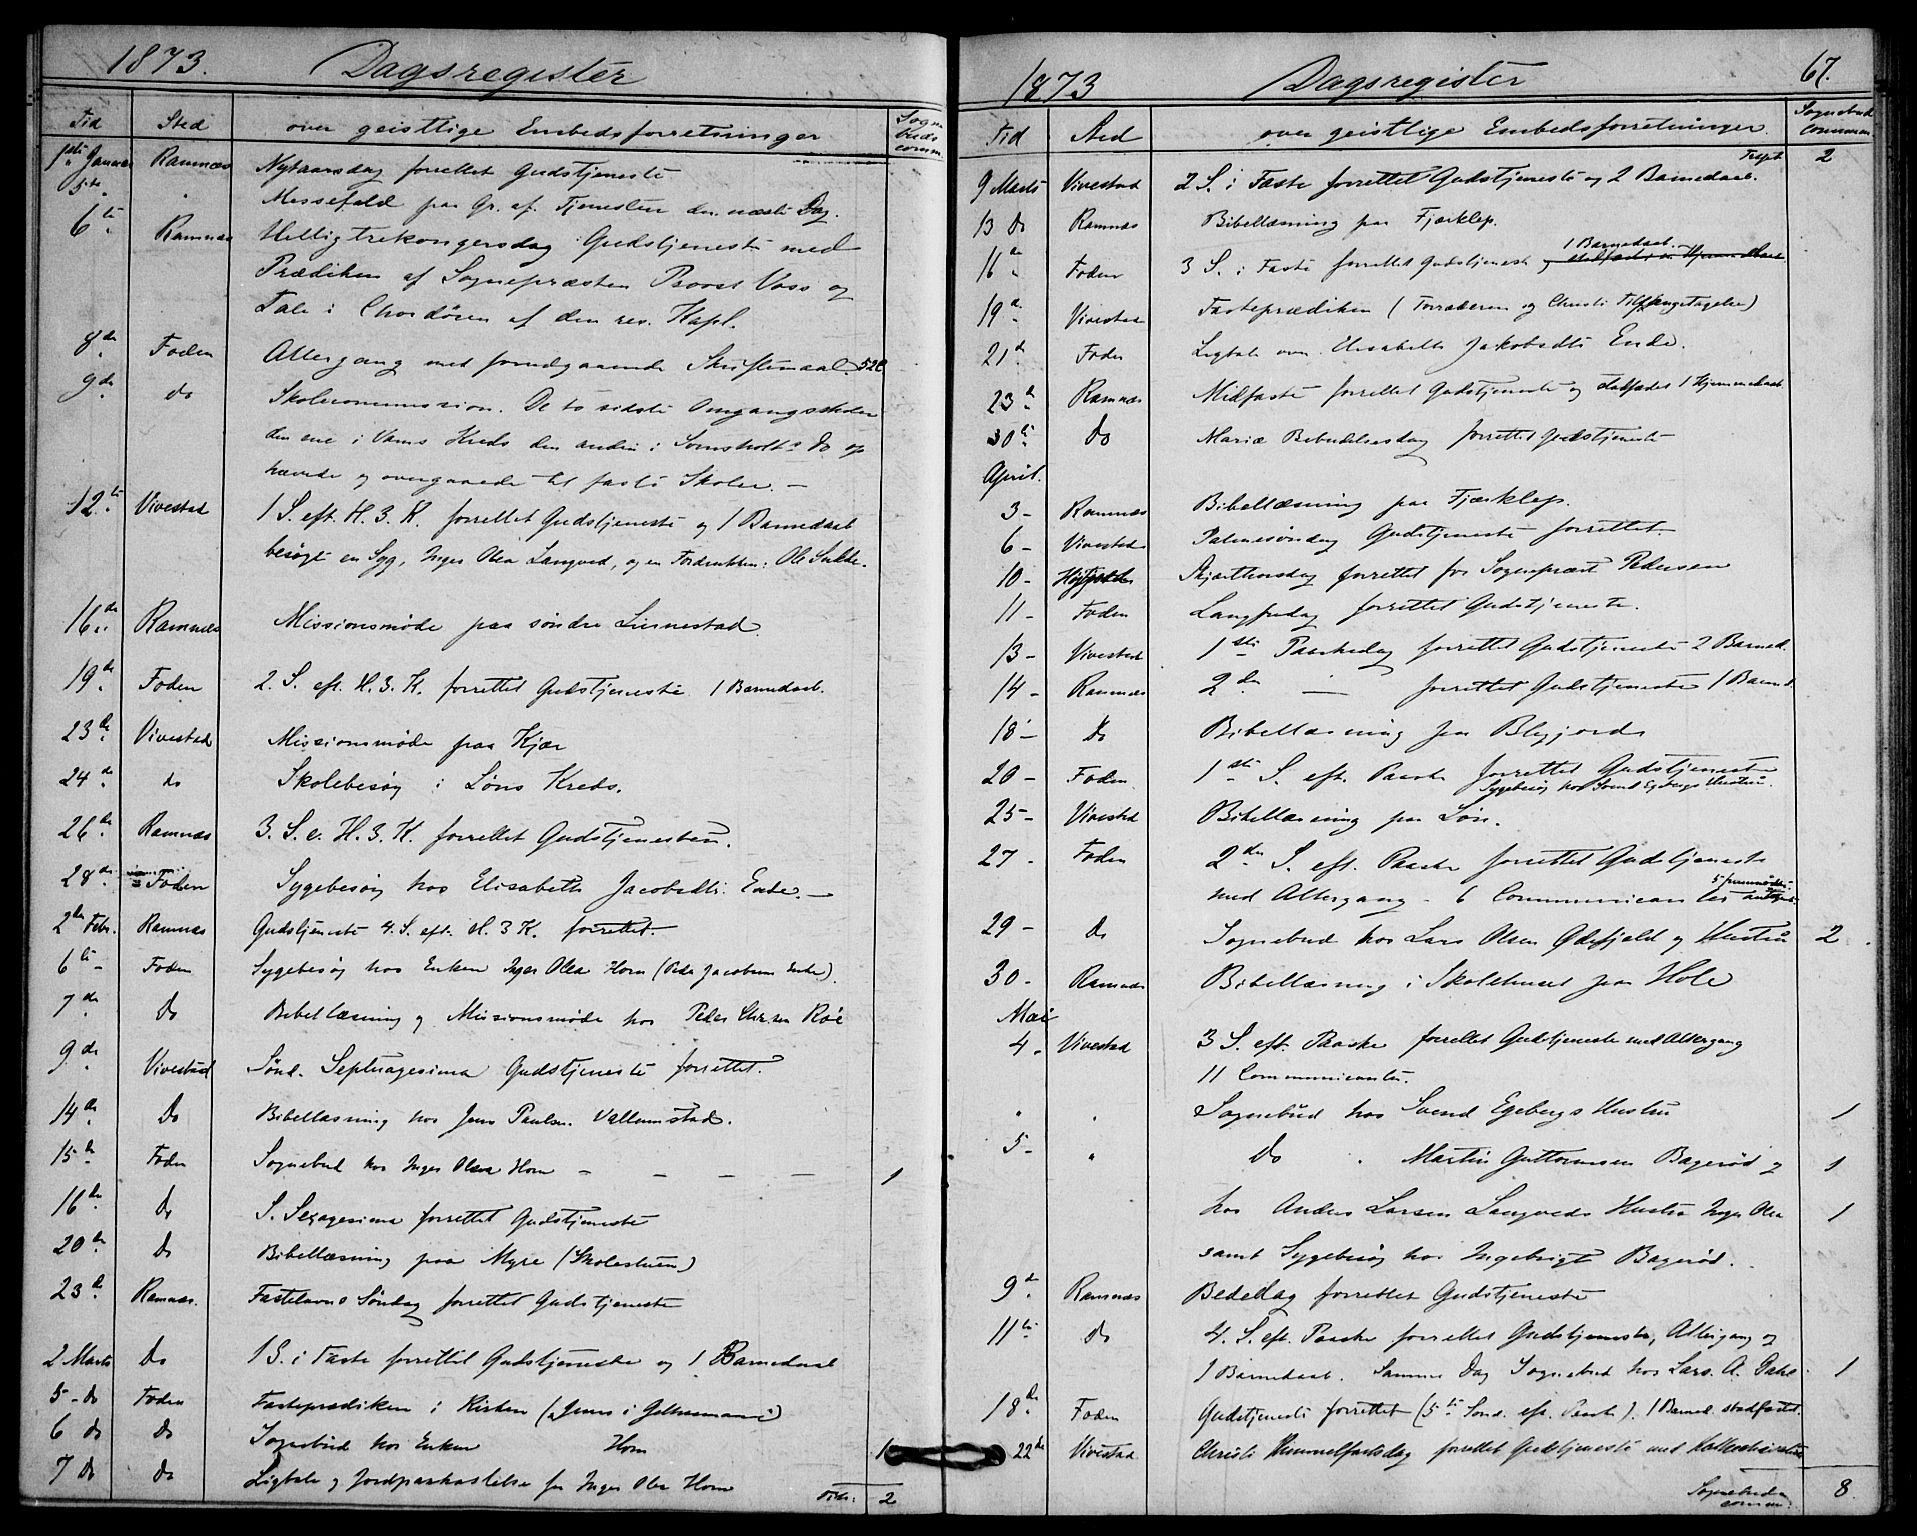 1873. Dagsregister
Tid Sted over geistlige Embedsforretninger Sogne buds comm.
1ste Januar Ramnæs Nytaarsdag forrettet Gudstjeneste
5te " Messefald paa Gr. af Tjenesten den næste Dag.
6te Ramnæs Helligtrekongersdag Gudstjeneste med
Prædiken af Sognepræsten Provst Voss og
Tale i Chordören af den res. Kapl.
8de Foden Altergang med forudgaaende Skriftemaal. 52
9de do Skolecommission. De to sidste Omgangsskoler
den ene i Vams Kreds den anden i Do op
hævede og overgaaede til faste Skoler. -
12te Vivestad 1 S. eft. H. 3. K. forrettet Gudstjeneste og 1 Barnedaab
besøgt en Syg, Inger Olea Langved, og en Fordrukken: Ole
16de Ramnæs Missionsmöde paa söndre Linnestad.
19de Foden 2. S. eft. H. 3. K. forrettet Gudstjeneste 1 Barnedaab.
23de Vivestad Missionsmöde paa Kjær
24de do Skolebesøg i Löns Kreds.
26de Ramnæs 3. S. e. H. 3. K forrettet Gudstjenesten.
28de Foden Sygebesøg hos Elisabeth Jacobsdtr. Ende. -
2den Febr. Ramnæs Gudstjeneste 4. S. eft. H. 3 K. forrettet.
6te - Foden Sygebesøg hos Enken Inger Olea Horn (Peder Jacobsens Enke).
7de Do Bibellæsning og Missionsmöde hos Peder Röe
9de Vivestad Sönd. Septuagesima Gudstjeneste forrettet.
14de Do Bibellæsning hos Jens Paulsen Vallumstad.
15de Foden Sognebud hos Inger Olea Horn - - - - 1
16de Do S. Sexagesima forrettet Gudstjeneste
20de Do Bibellæsning paa Myre (Skolestuen)
23de Ramnæs. Fastelavns Söndag forrettet Gudstjeneste
2 Marts Do 1 S. i Faste forrettet Gudstjeneste og 1 Barnedaab
5 - Do Foden Fasteprædiken i Kirken (Jesus i Gethsemane)
6 do Do Sognebud hos Enken Horn 1
7 Do Do Ligtale og Jordpaakastelse for Inger Olea Horn
2
1873 Dagsregister 67.
Tid Sted over geistlige Embedsforretninger. Sognebud commun.
2
9 Marts Vivestad 2 S. i Faste forrettet Gudstjeneste og 2 Barnedaab.
13 Do Ramnæs Bibellæsning paa Fjærklep.
1 Barnedaab.
16de Foden 3 S. i Faste forrettet Gudstjeneste og
19de Vivestad Fasteprædiken (Forræderen og Christi Tilfangetagelse)
21de Foden Ligtale over Elisabeth Jakobsdtr Ende.
23de Ramnæs Midfaste forrettet Gudstjeneste og stadfæstet 1 Hjemmedaab
30te Do Mariæ Bebudelsesdag forrettet Gudstjeneste
April.
3 - Ramnæs Bibellæsning paa Fjærklep.
6 - Vivestad Palmesöndag Gudstjeneste forrettet.
10 - Skjærthorsdag forrettet for Sognepræst Pedersen
11 - Foden Langfredag forrettet Gudstjeneste.
13 - Vivestad 1ste Paaskedag forrettet Gudstjeneste 2 Barned.
14 - Ramnæs 2den — forrettet Gudstjeneste 1 Barned.
18 - Do Bibellæsning paa
20 - Foden 1ste S. eft. Paaske forrettet Gudstjeneste
Sygebesøg hos Svend Egebergs Hustru.
25 - Vivestad Bibellæsning paa Lön.
27 - Foden 2den S. eft. Paaske forrettet Gudstjeneste
med Altergang - 6 Communicanter
29 - Do Sognebud hos Lars Olsen Ödefjeld og Hustru 2
30 - Ramnæs Bibellæsning i Skolehuset paa Hole
Mai
4 - Vivestad 3 S. eft. Paaske forrettet Gudstjeneste med Altergang
11 Communicanter.
" " Sognebud hos Svend Egebergs Hustru 1
5 - " Do " Martin Guttormsen Bagerød og 1
hos Anders Larsen Langveds Hustru Inger Olea 1
samt Sygebesøg hos Ingebrigt Bagerød.
9de Ramnæs Bededag forrettet Gudstjeneste
11te Do 4. S. eft. Paaske forrettet Gudstjeneste, Altergang og
1 Barnedaab. Samme Dag Sognebud hos Lars. A. 1
18de Foden Gudstjeneste forrettet (5te Sönd. eft. Paaske). 1 Barned. stadfæstet.
22de Vivestad Christi Himmelfartsdag forrettet Gudstjeneste med Katkechisation
Sognebuds comm. 8.